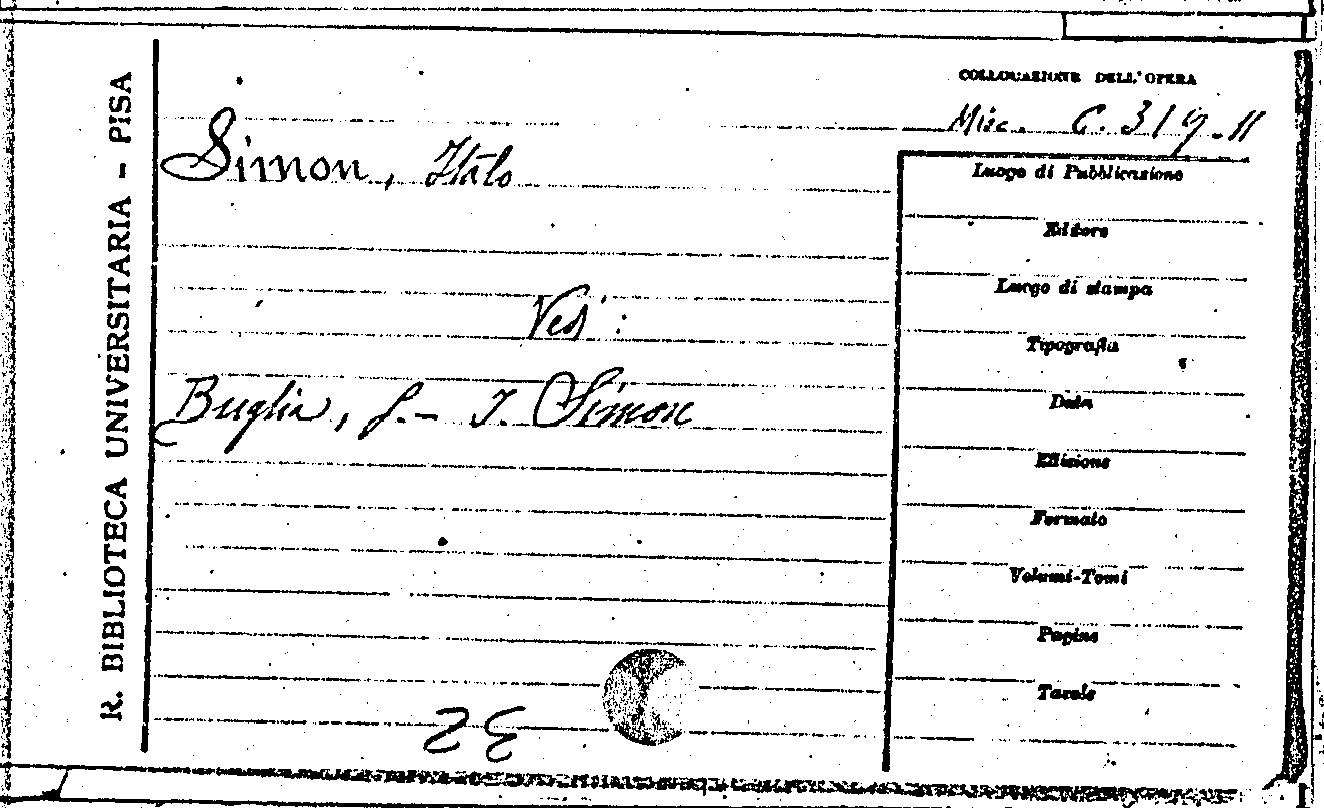 R. BIBLIOTECA UNIVERSITARIA - PISA
COLLOCAZIONE DELL'OPERA
Misc. C. 319.11
Simon, Italo
Vedi:
Buglia, G. - I. Simon
Luogo di Pubblicazione
Editore
Luogo di stampa
Tipografia
Data
Edizione
Formato
Volumi-Tomi
Pagine
Tavole